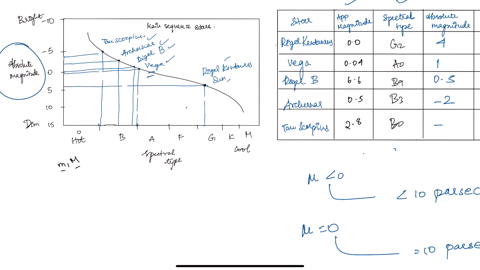 Bright
-10
Main sequence stars
Tau scorpius ✓
Achernar ✓
Rigel B ✓
Vega ✓
Regel Kentaurus
Sun
Absolute
magnitude
-5
0
5
10
15
Dim
O B A F G K M
Hot
Cool
Spectral
type
m, M
Star App Magnitude Spectral type Absolute magnitude
Regel Kentaurus 0.0 G2 4
Vega 0.04 A0 1
Regel B 6.6 B9 0.5
Achernar 0.5 B3 -2
Tau Scorpius 2.8 B0 -
μ < 0
< 10 parsec
μ = 0
= 10 parsec